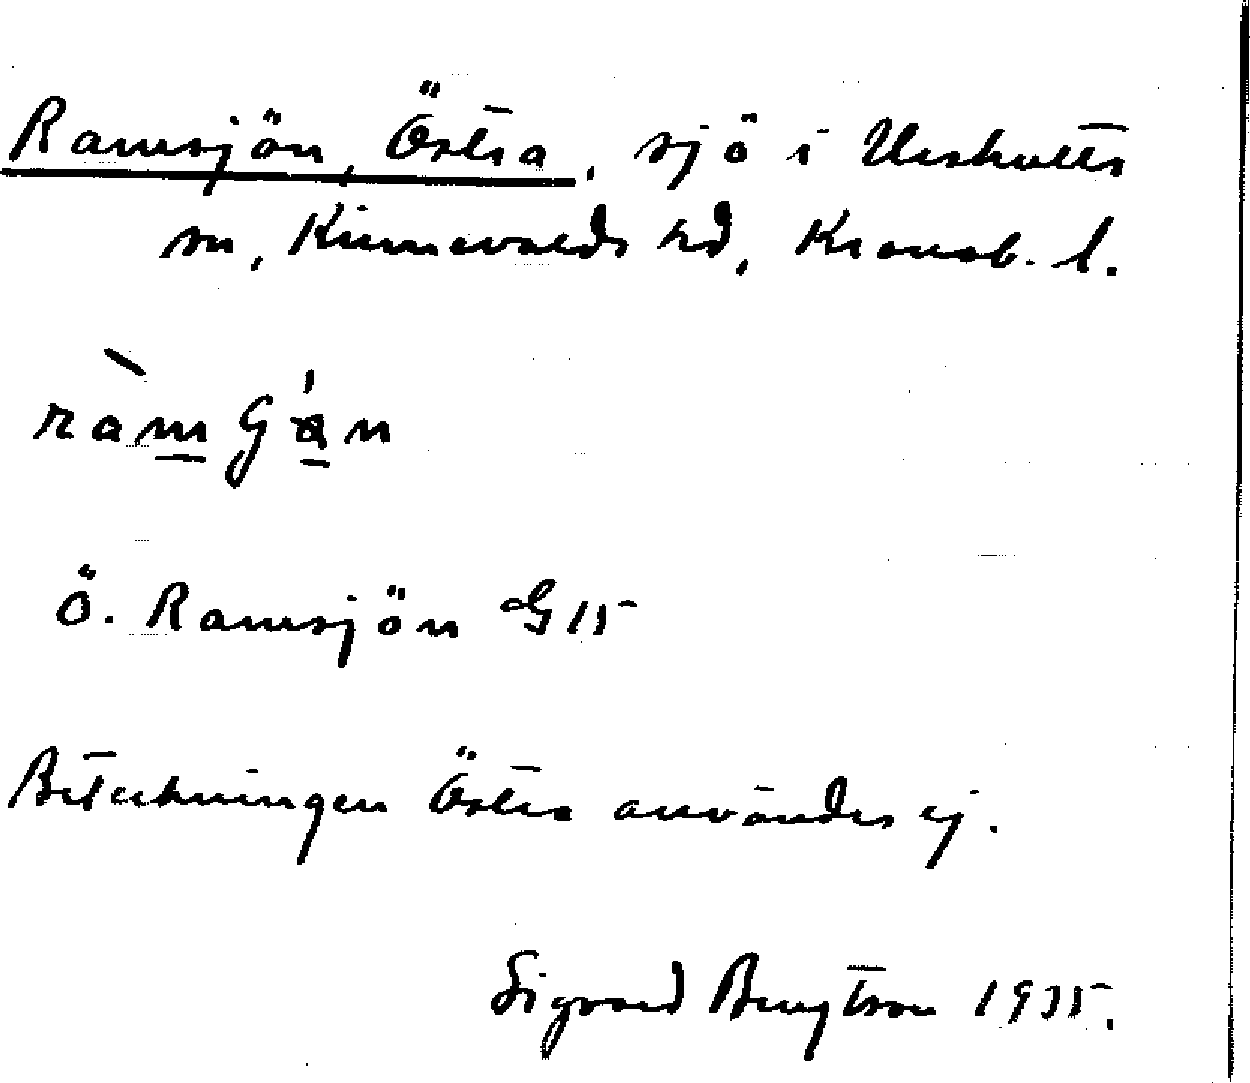 Ramsjön, Östra, sjö i Urshults
sn, Kinnevalds hd, Kronob. l.
ràmGán
Ö. Ramsjön G 15
Beteckningen Östra användes ej.
Sigvard Bengtson 1935.